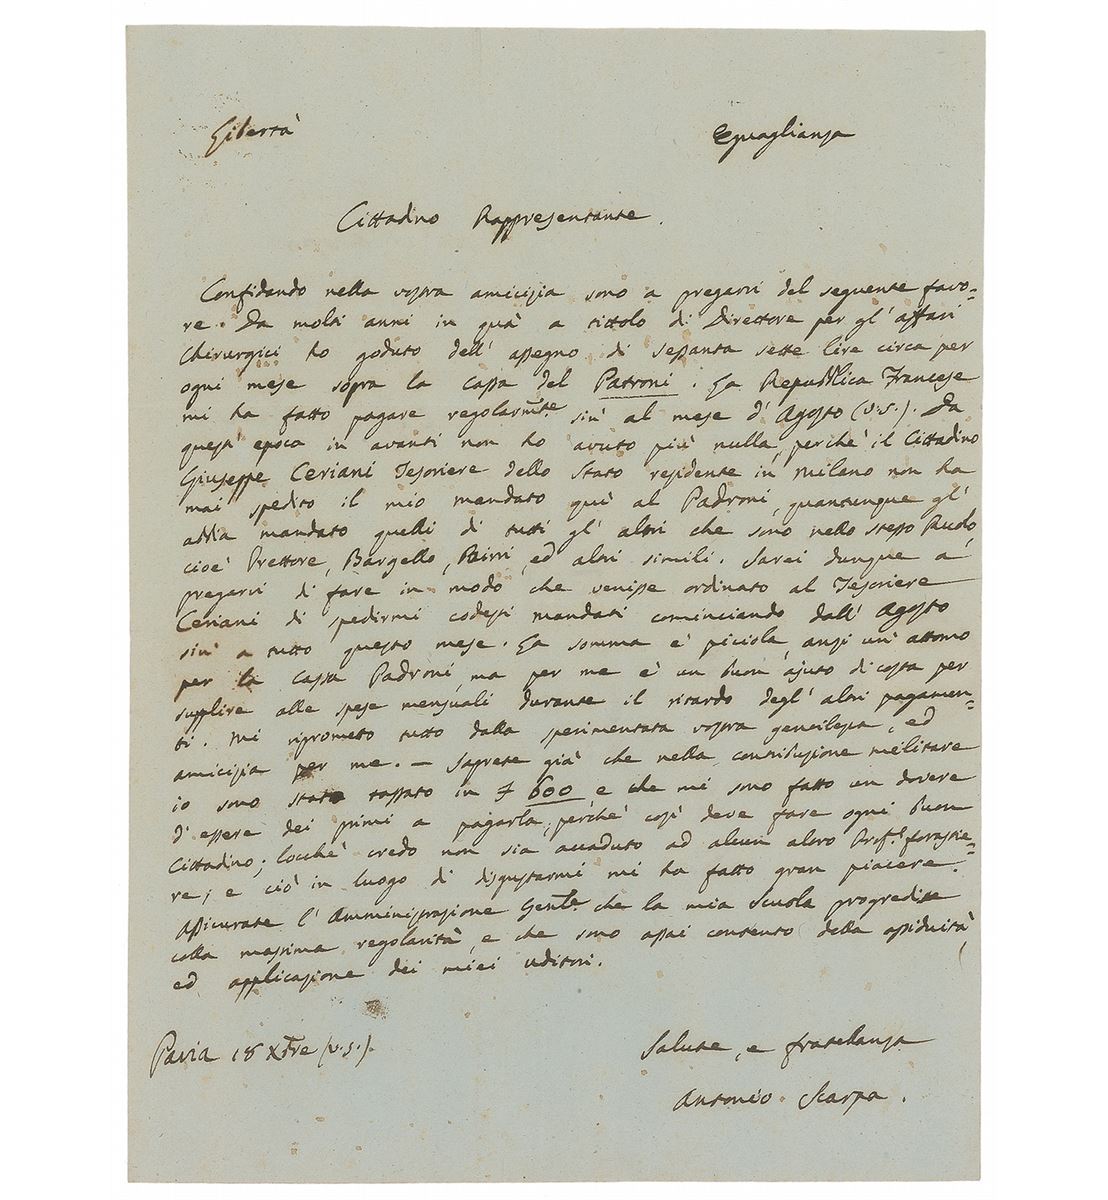 Libertà
Eguaglianza
Cittadino Rappresentante.
Confidando nella vostra amicizia sono a pregarvi del seguente favo=
re. Da molti anni in quà a tittolo di Direttore per gl' affari
Chirurgici ho goduto dell' assegno di sessanta sette lire circa per
ogni mese sopra la cassa del Patroni. La Repubblica Francese
mi ha fatto pagare regolarmte sin' al mese d' Agosto (v.s.). Da
quest' epoca in avanti non ho avuto più nulla, perchè il Cittadino
Giuseppe Ceriani Tesoriere dello Stato residente in Milano non ha
mai spedito il mio mandato quì al Padroni, quantunque gl'
abbia mandato quelli di tutti gl' altri che sono nello stesso Ruolo,
cioè Prettore, Bargello, Birri, ed altri simili. Sarei dunque a
pregarvi di fare in modo che venisse ordinato al Tesoriere
Ceriani di spedirmi codesti mandati cominciando dall' Agosto
sin' a tutto questo mese. La somma è picciola, anzi un' attomo
per la cassa Padroni, ma per me è un buon ajuto di costa per
supplire alle spese mensuali durante il ritardo degl' altri pagamen=
ti. Mi riprometto tutto dalla sperimentata vostra gentilezza, ed
amicizia per me. — Saprete già che nella contribuzione militare
io sono stato tassato in 600 e che mi sono fatto un dovere
d' essere dei primi a pagarla, perchè così deve fare ogni buon
Cittadino; locchè credo non sia accaduto ad alcun altro Profs. forastie=
re; e ciò in luogo di disgustarmi mi ha fatto gran piacere.
Assicurate l' Amministrazione Genle. che la mia Scuola progredisce
colla massima regolarità, e che sono assai contento della assiduità,
ed applicazione dei miei uditori.
Pavia 18 Xbre (v.s.).
Salute, e fratellanza
Antonio Scarpa.